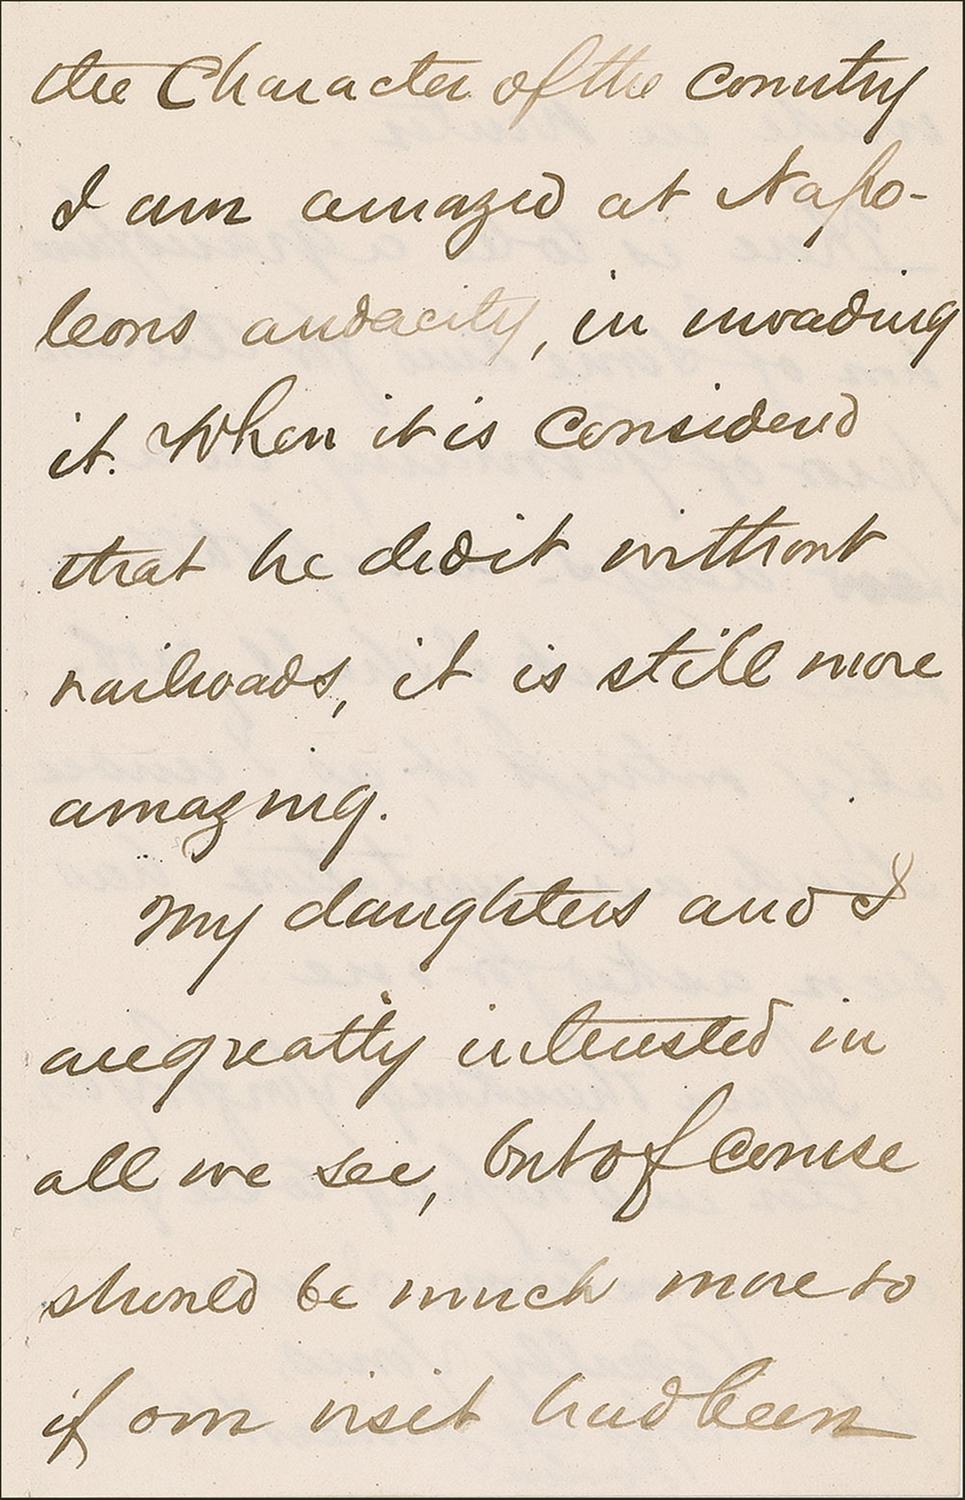 the Character of the country
I am amazed at Napo-
leons audacity, in invading
it. When it is Considered
that he did it without
railroads, it is still more
amazing.
My daughters and I
are greatly interested in
all we see, but of Course
should be much more so
if our visit had been